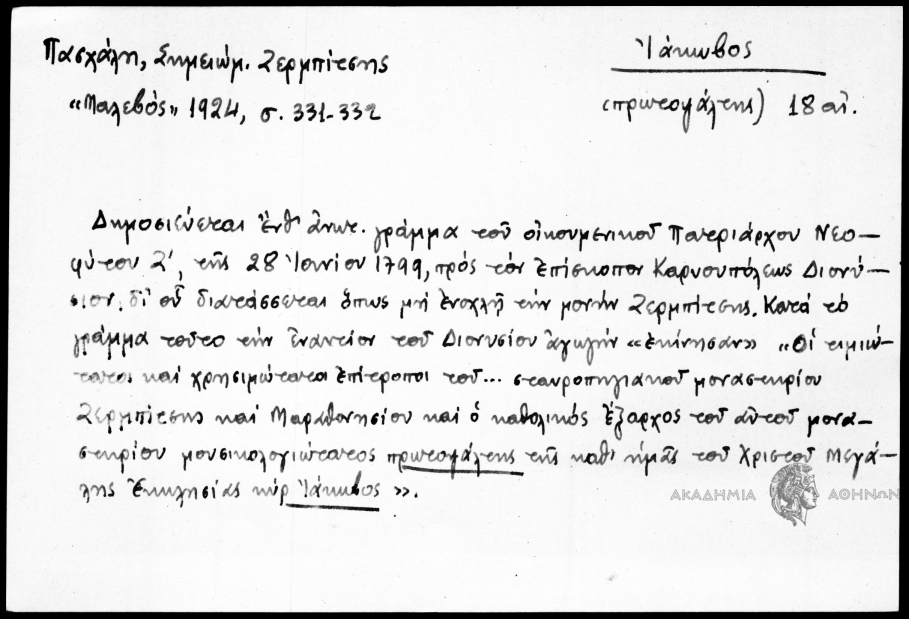 Πασχάλη, Σημειώμ. Ζερμπίτσης
Ἰάκωβος
«Μαλεβὸς» 1924, σ. 331-332
(πρωτοψάλτης) 18 αἰ.
Δημοσιεύεται ἔνθ' ἀνωτ. γράμμα τοῦ οἰκουμενικοῦ Πατριάρχου Νεο-
φύτου Ζ', τῆς 28 Ἰουνίου 1799, πρὸς τὸν ἐπίσκοπον Καρυουπόλεως Διονύ-
σιον, δι' οὗ διατάσσεται ὅπως μὴ ἐνοχλῇ τὴν μονὴν Ζερμπίτσης. Κατὰ τὸ
γράμμα τοῦτο τὴν ἐναντίον τοῦ Διονυσίου ἀγωγὴν «ἐκίνησαν» «Οἱ τιμιώ-
τατοι καὶ χρησιμώτατοι ἐπίτροποι τοῦ... σταυροπηγιακοῦ μοναστηρίου
Ζερμπίτσης καὶ Μαραθονησίου καὶ ὁ καθολικὸς ἔξαρχος τοῦ αὐτοῦ μονα-
στηρίου μουσικολογιώτατος πρωτοψάλτης τῆς καθ' ἡμᾶς τοῦ Χριστοῦ Μεγά-
λης Ἐκκλησίας κὺρ Ἰάκωβος».
ΑΚΑΔΗΜΙΑ ΑΘΗΝΩΝ